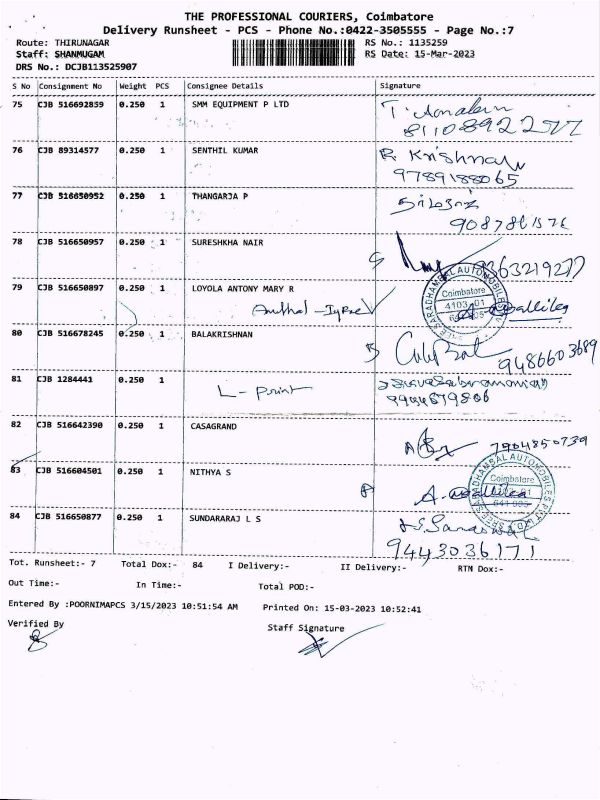 THE PROFESSIONAL COURIERS, Coimbatore
Delivery Runsheet - PCS - Phone No.:0422-3505555 - Page No.:7
Route: THIRUNAGAR RS No.: 1135259
Staff: SHANMUGAM RS Date: 15-Mar-2023
DRS No.: DCJB113525907
S No Consignment No Weight PCS Consignee Details Signature
75 CJB 516692859 0.250 1 SMM EQUIPMENT P LTD
76 CJB 89314577 0.250 1 SENTHIL KUMAR R. Krishnan
9789188065
77 CJB 516650952 0.250 1 THANGARJA P
78 CJB 516650957 0.250 1 SURESHKHA NAIR
9363219277
79 CJB 516650897 0.250 1 LOYOLA ANTONY MARY R
SARADHAMBAL AUTOMOBILES
Coimbatore
80 CJB 516678245 0.250 1 BALAKRISHNAN
9486603689
81 CJB 1284441 0.250 1
L - Print
82 CJB 516642390 0.250 1 CASAGRAND
7904850739
83 CJB 516604501 0.250 1 NITHYA S
SARADHAMBAL AUTOMOBILES
Coimbatore
84 CJB 516650877 0.250 1 SUNDARARAJ L S
9443036171
Tot. Runsheet:- 7 Total Dox:- 84 I Delivery:- II Delivery:- RTN Dox:-
Out Time:- In Time:- Total POD:-
Entered By :POORNIMAPCS 3/15/2023 10:51:54 AM Printed On: 15-03-2023 10:52:41
Verified By Staff Signature